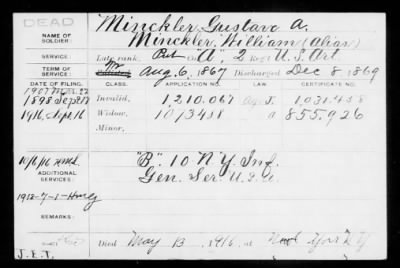 DEAD
Minckler, Gustave A.
NAME OF SOLDIER:
Minckler, William (Alias)
SERVICE:
Late rank, Pvt Co "A", 2 Reg't U.S. Art.
TERM OF SERVICE:
Aug. 6, 1867 Discharged Dec 8 1869
DATE OF FILING. CLASS. APPLICATION NO. LAW. CERTIFICATE NO.
1907 Mar. 22
1898 Sept 17 Invalid, 1,210,067 1,031,458
1916, Sep 16 Widow, 1073458 a 855,926
Minor,
ADDITIONAL SERVICES:
"B", 10 N.Y. Inf.
Gen. Ser. U.S.A.
REMARKS:
Died May 13, 1916, at New York N Y
J.E.T.